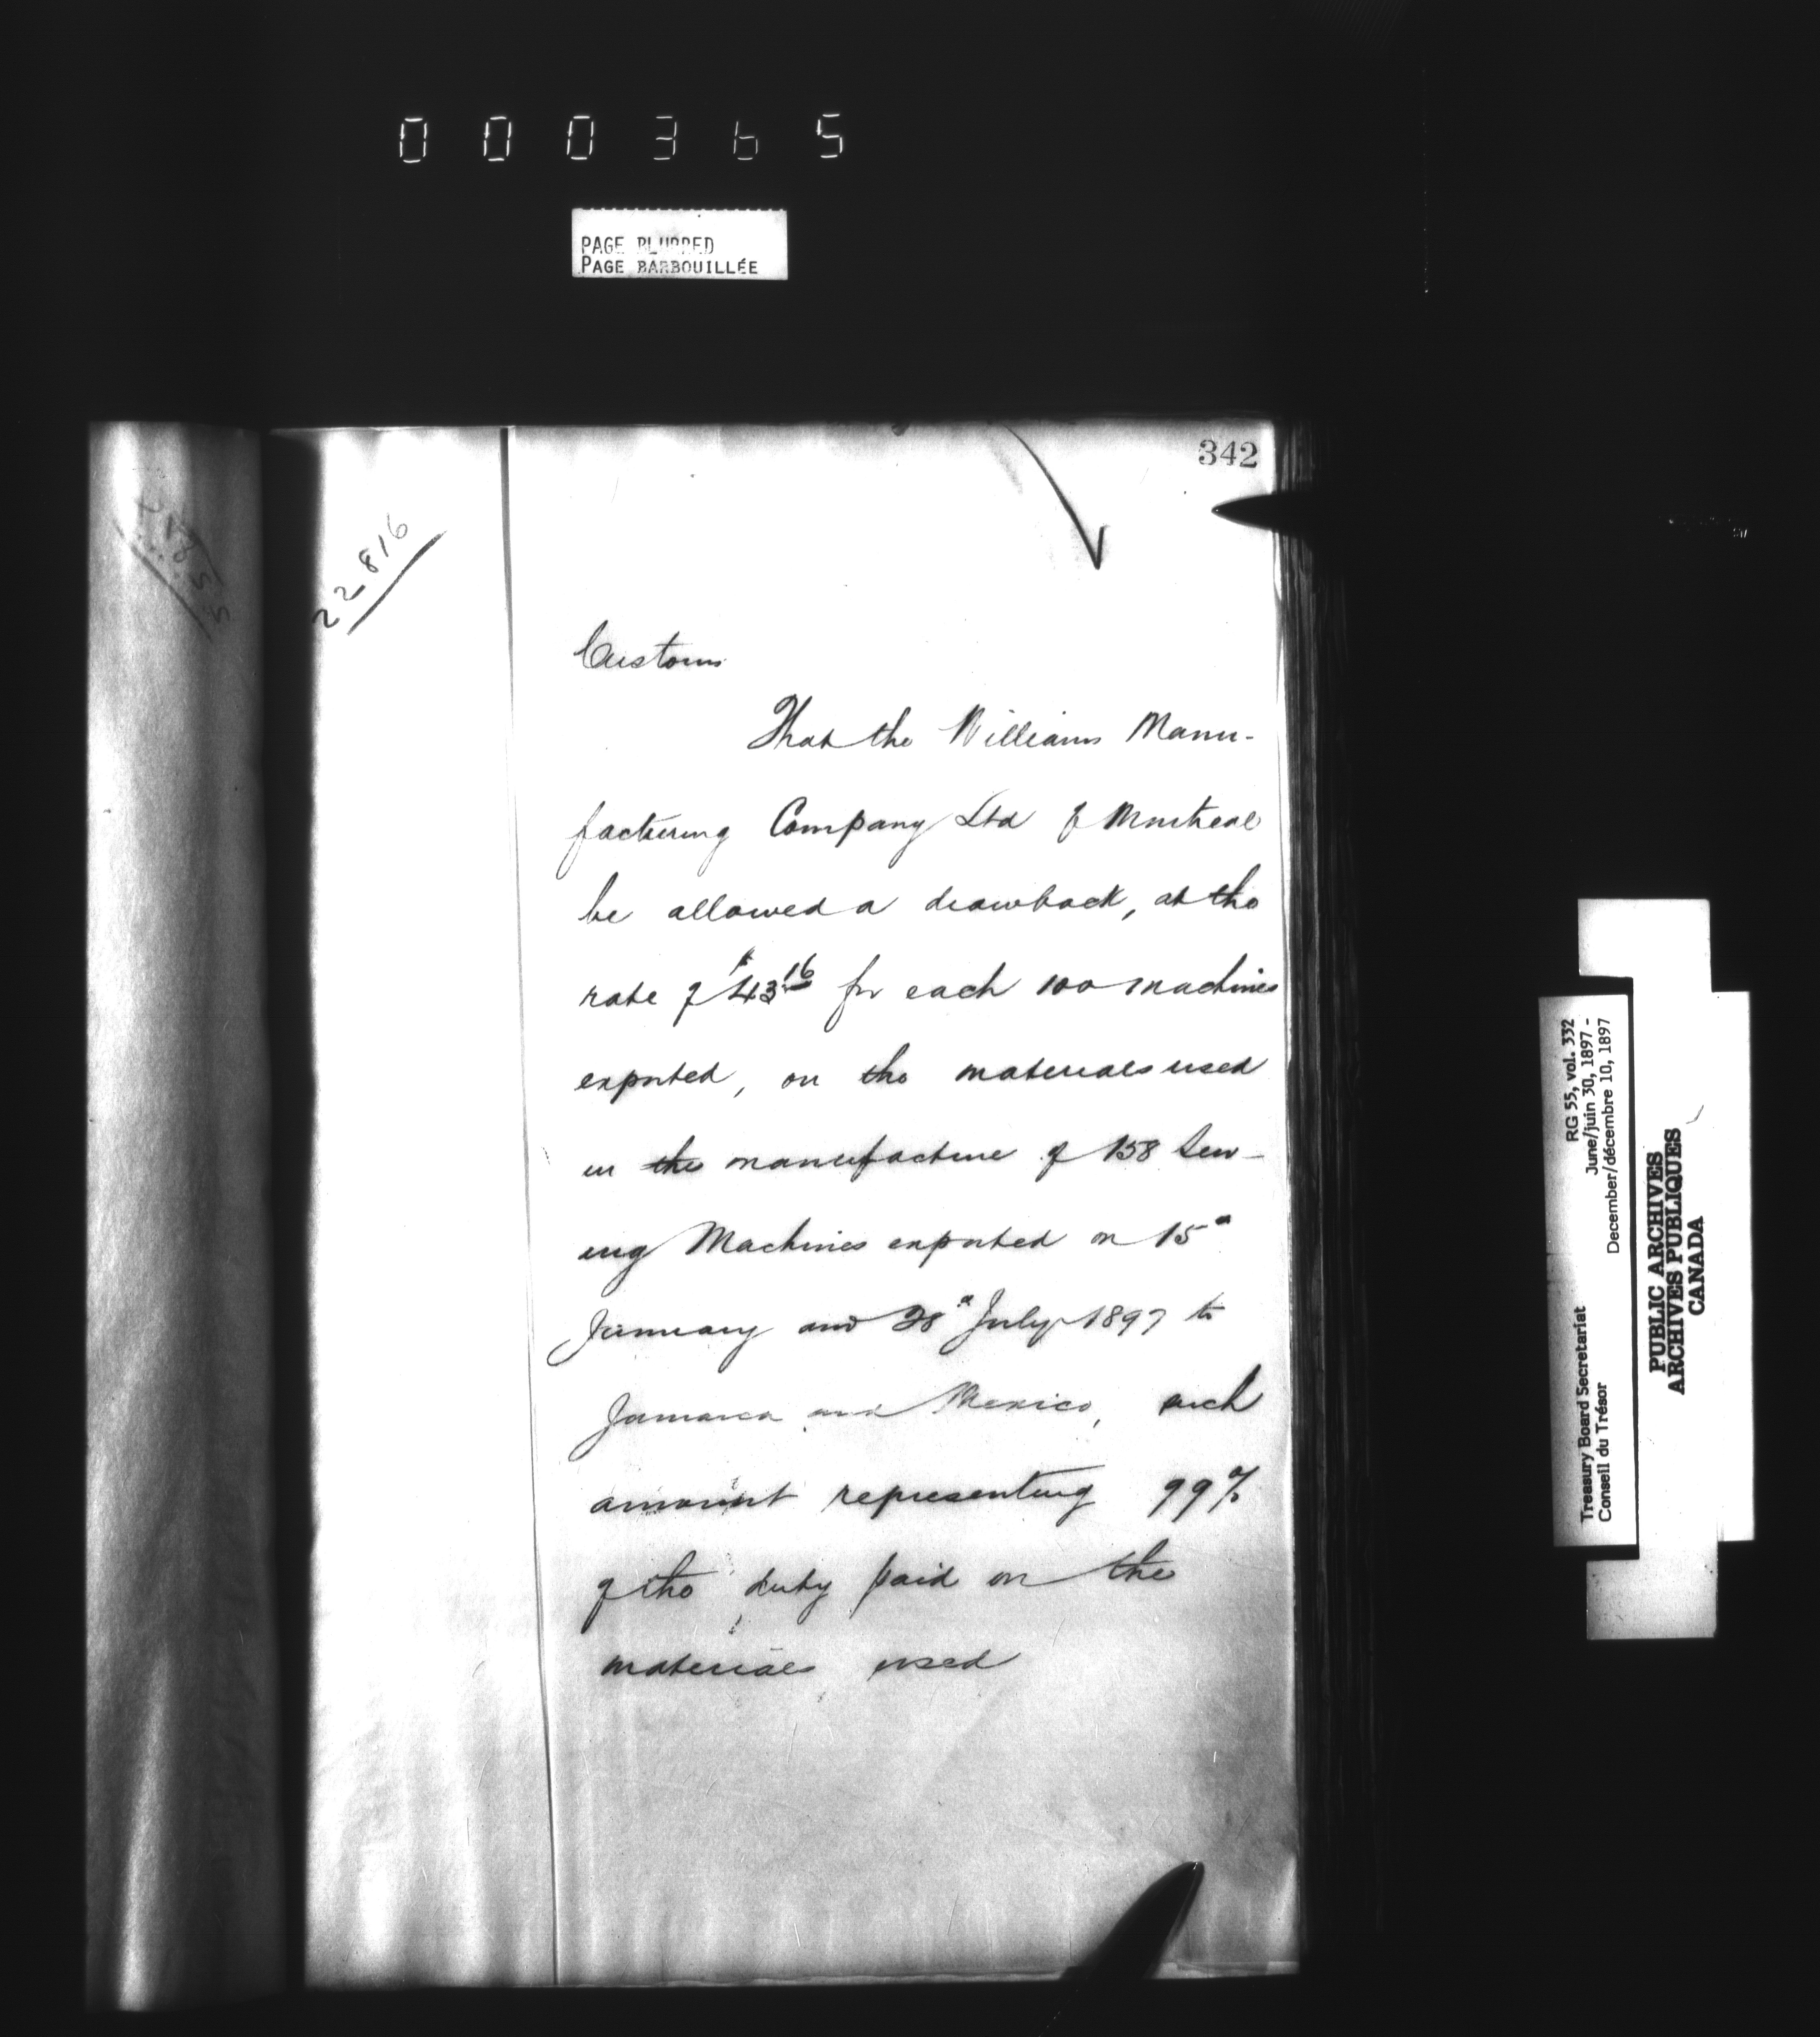 000365
PAGE BLURRED
PAGE BARBOUILLÉE
342
22816
Customs
That the Williams Manu-
facturing Company Ltd of Montreal
be allowed a drawback, at the
rate of $43.16 for each 100 machines
exported, on the materials used
in the manufacture of 158 Sew-
ing Machines exported on 15"
January and 28" July 1897 to
Jamaica and Mexico, such
amount representing 99%
of the duty paid on the
materials used
RG 55, vol. 332
June/juin 30, 1897 -
December/décembre 10, 1897
Treasury Board Secretariat
Conseil du Trésor
PUBLIC ARCHIVES
ARCHIVES PUBLIQUES
CANADA